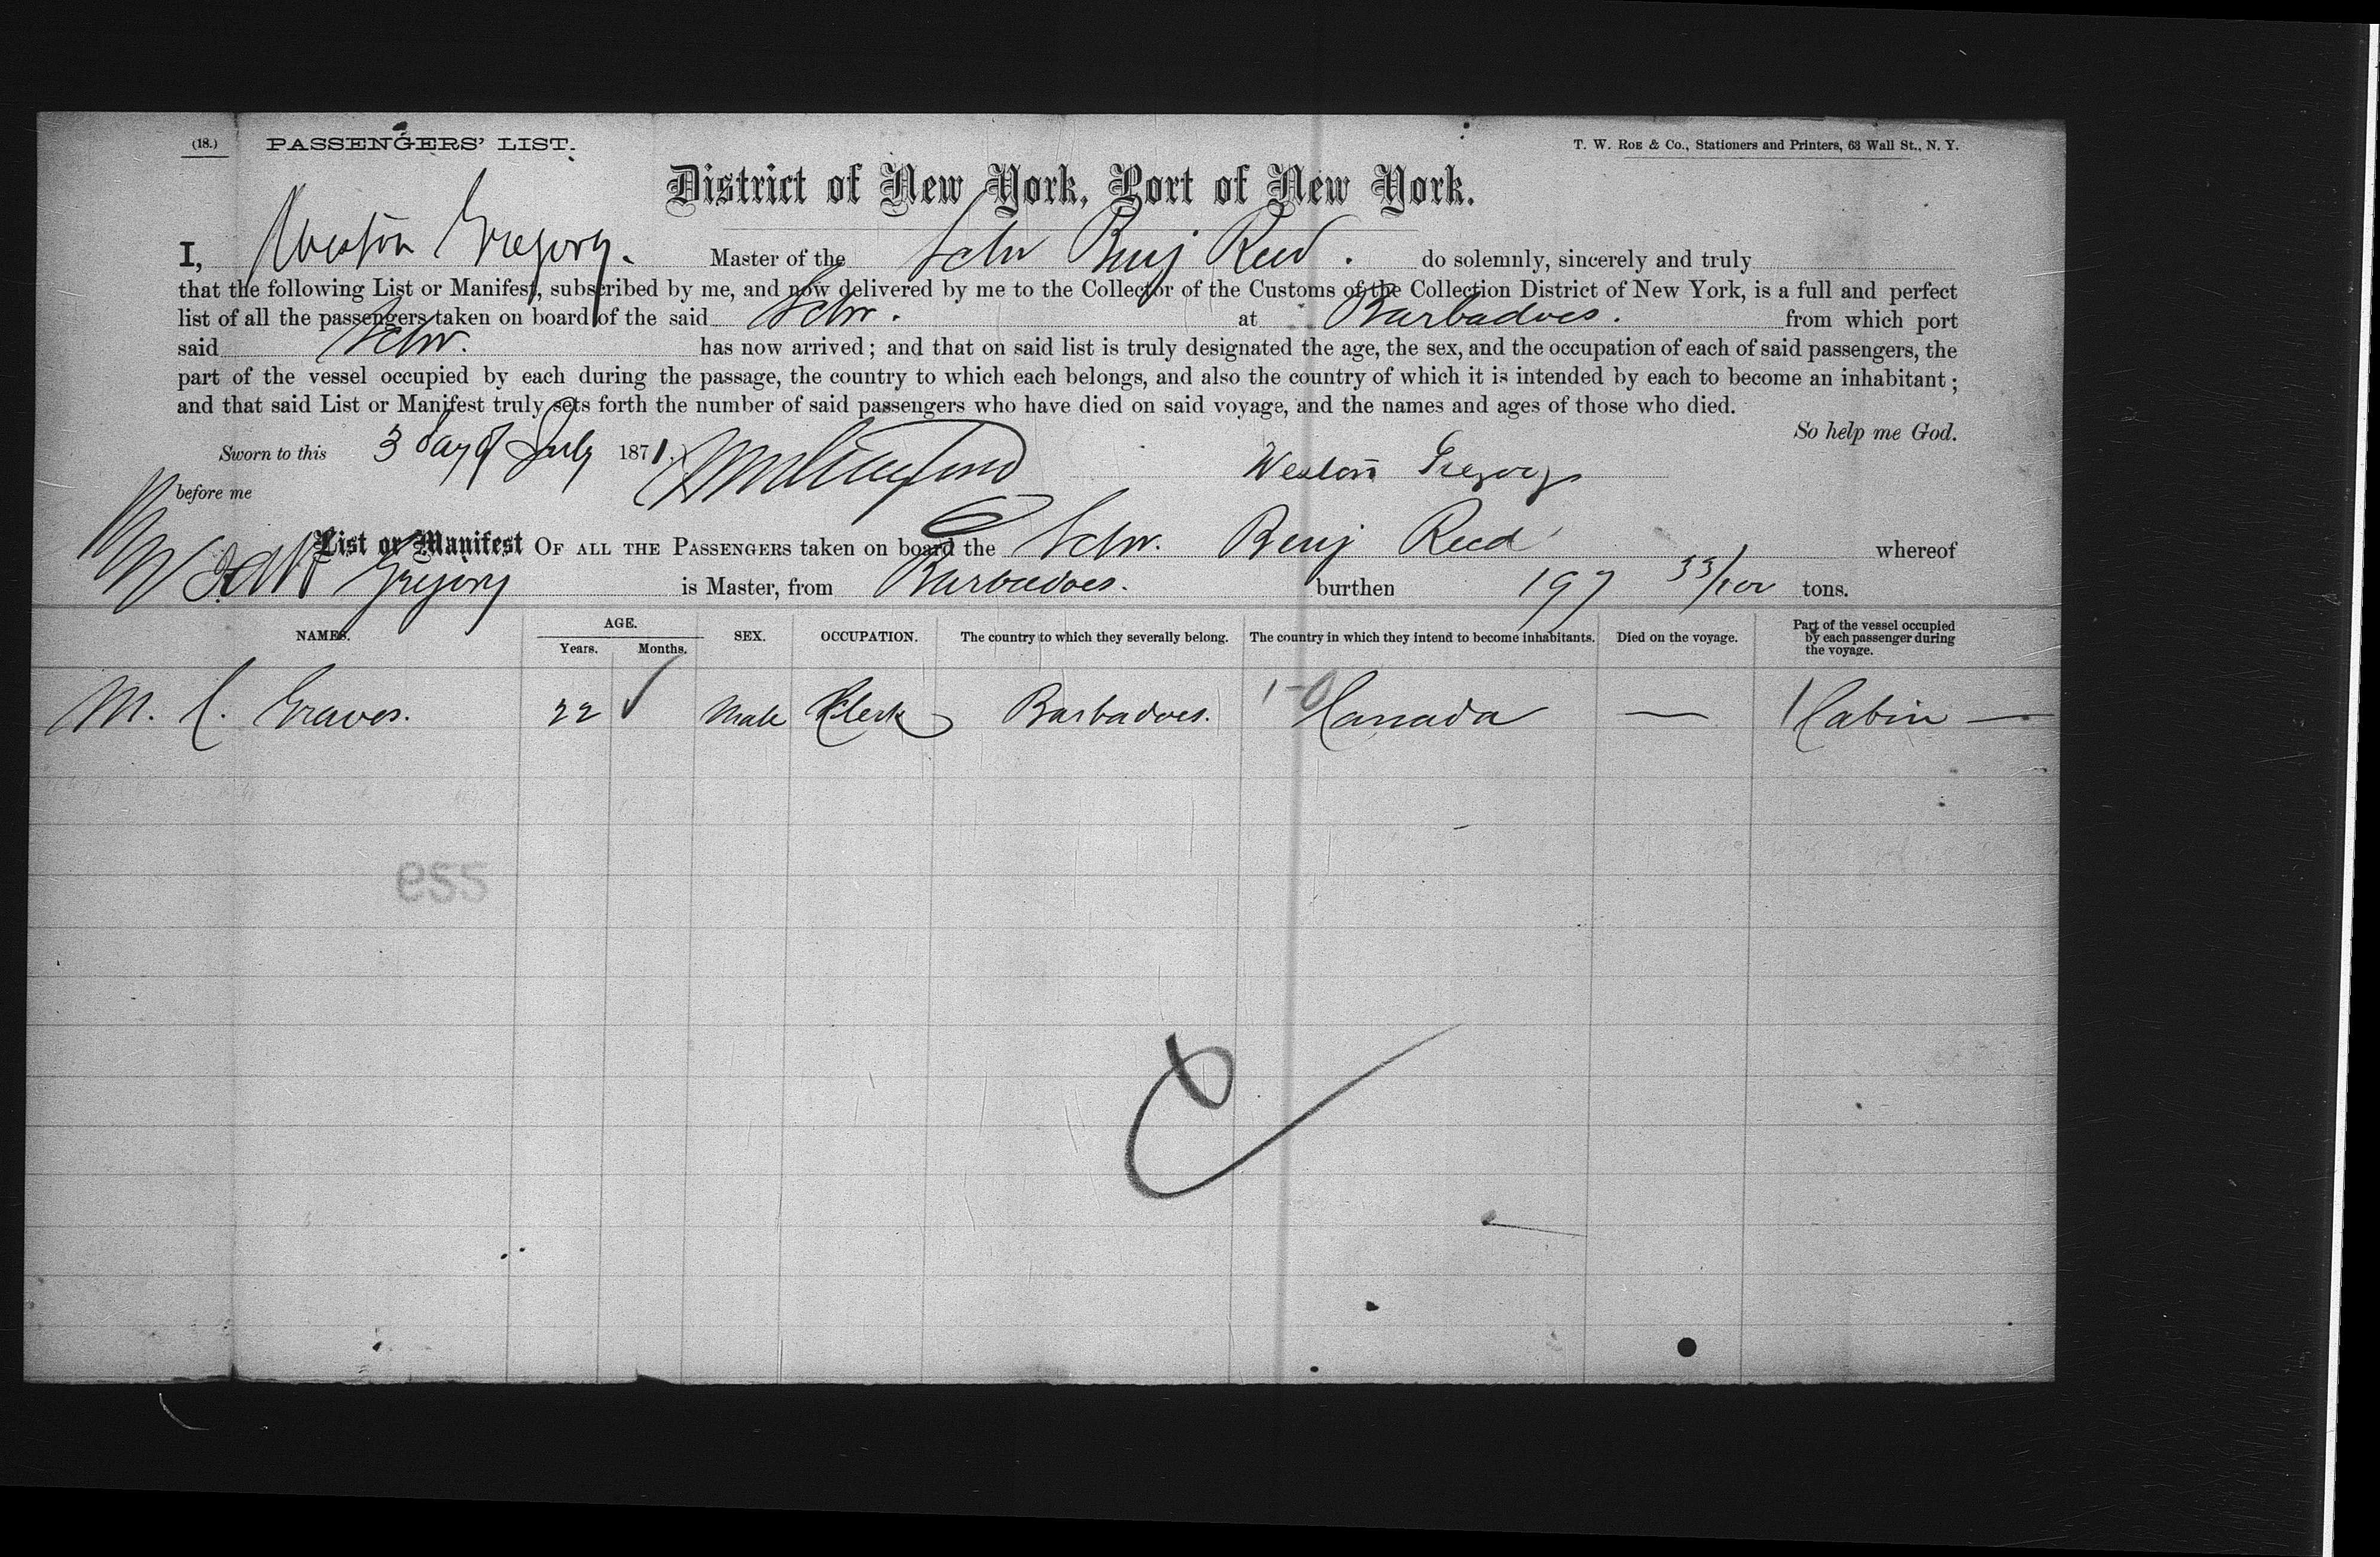 (18.) PASSENGERS' LIST. T. W. ROE & Co., Stationers and Printers, 63 Wall St., N. Y.
District of New York, Port of New York.
I, Weston Gregory. Master of the Schr Benj Reed. do solemnly, sincerely and truly
that the following List or Manifest, subscribed by me, and now delivered by me to the Collector of the Customs of the Collection District of New York, is a full and perfect
list of all the passengers taken on board of the said Schr. at Barbadoes. from which port
said Schr. has now arrived; and that on said list is truly designated the age, the sex, and the occupation of each of said passengers, the
part of the vessel occupied by each during the passage, the country to which each belongs, and also the country of which it is intended by each to become an inhabitant;
and that said List or Manifest truly sets forth the number of said passengers who have died on said voyage, and the names and ages of those who died.
So help me God.
Sworn to this 3 day of July 1871. Weston Gregory
before me
List or Manifest OF ALL THE PASSENGERS taken on board the Schr. Benj Reed whereof
Gregory is Master, from Barbadoes. burthen 197 33/100 tons.
NAMES. AGE. Years. Months. SEX. OCCUPATION. The country to which they severally belong. The country in which they intend to become inhabitants. Died on the voyage. Part of the vessel occupied by each passenger during the voyage.
M. C. Graves. 22 ✓ Male Clerk Barbadoes. Canada — 1 Cabin —